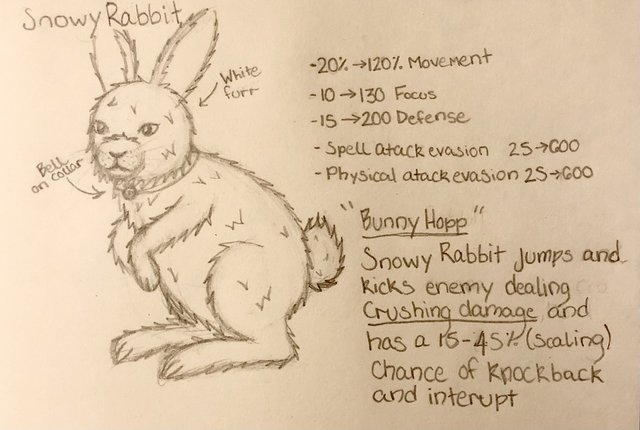 Snowy Rabbit
White
furr
Bell
on collar
-20% →120% Movement
-10 →130 Focus
-15 →200 Defense
- Spell atack evasion 25→600
- Physical atack evasion 25→600
"Bunny Hopp"
Snowy Rabbit jumps and
kicks enemy dealing
Crushing damage and
has a 15-45% (scaling)
Chance of knockback
and interupt